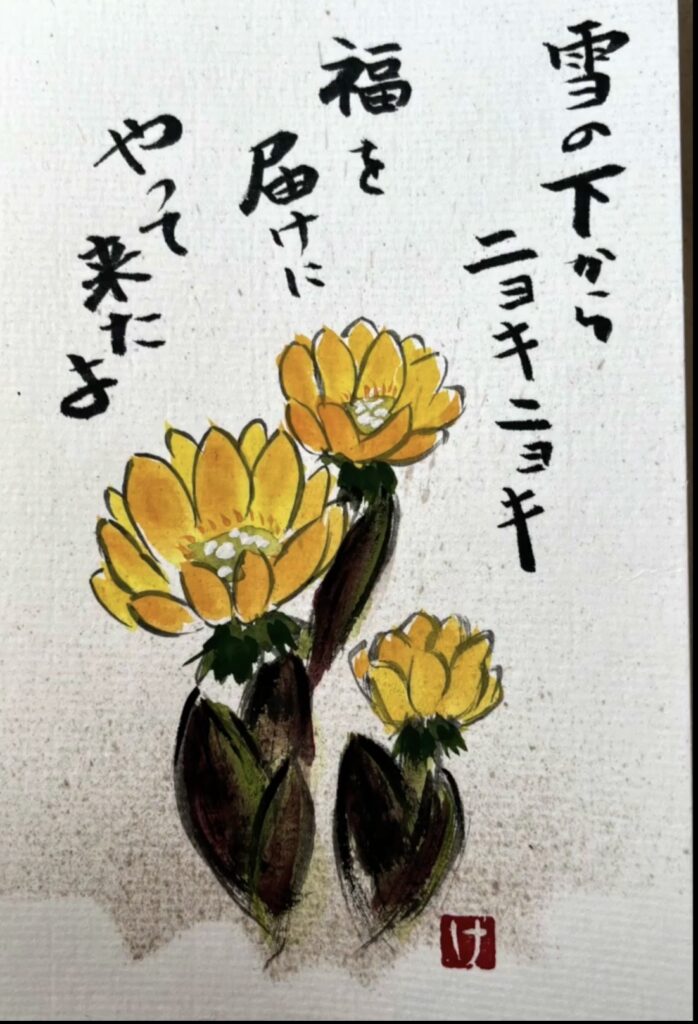 雪の下から
ニョキニョキ
福を
届けに
やって
来たよ
け